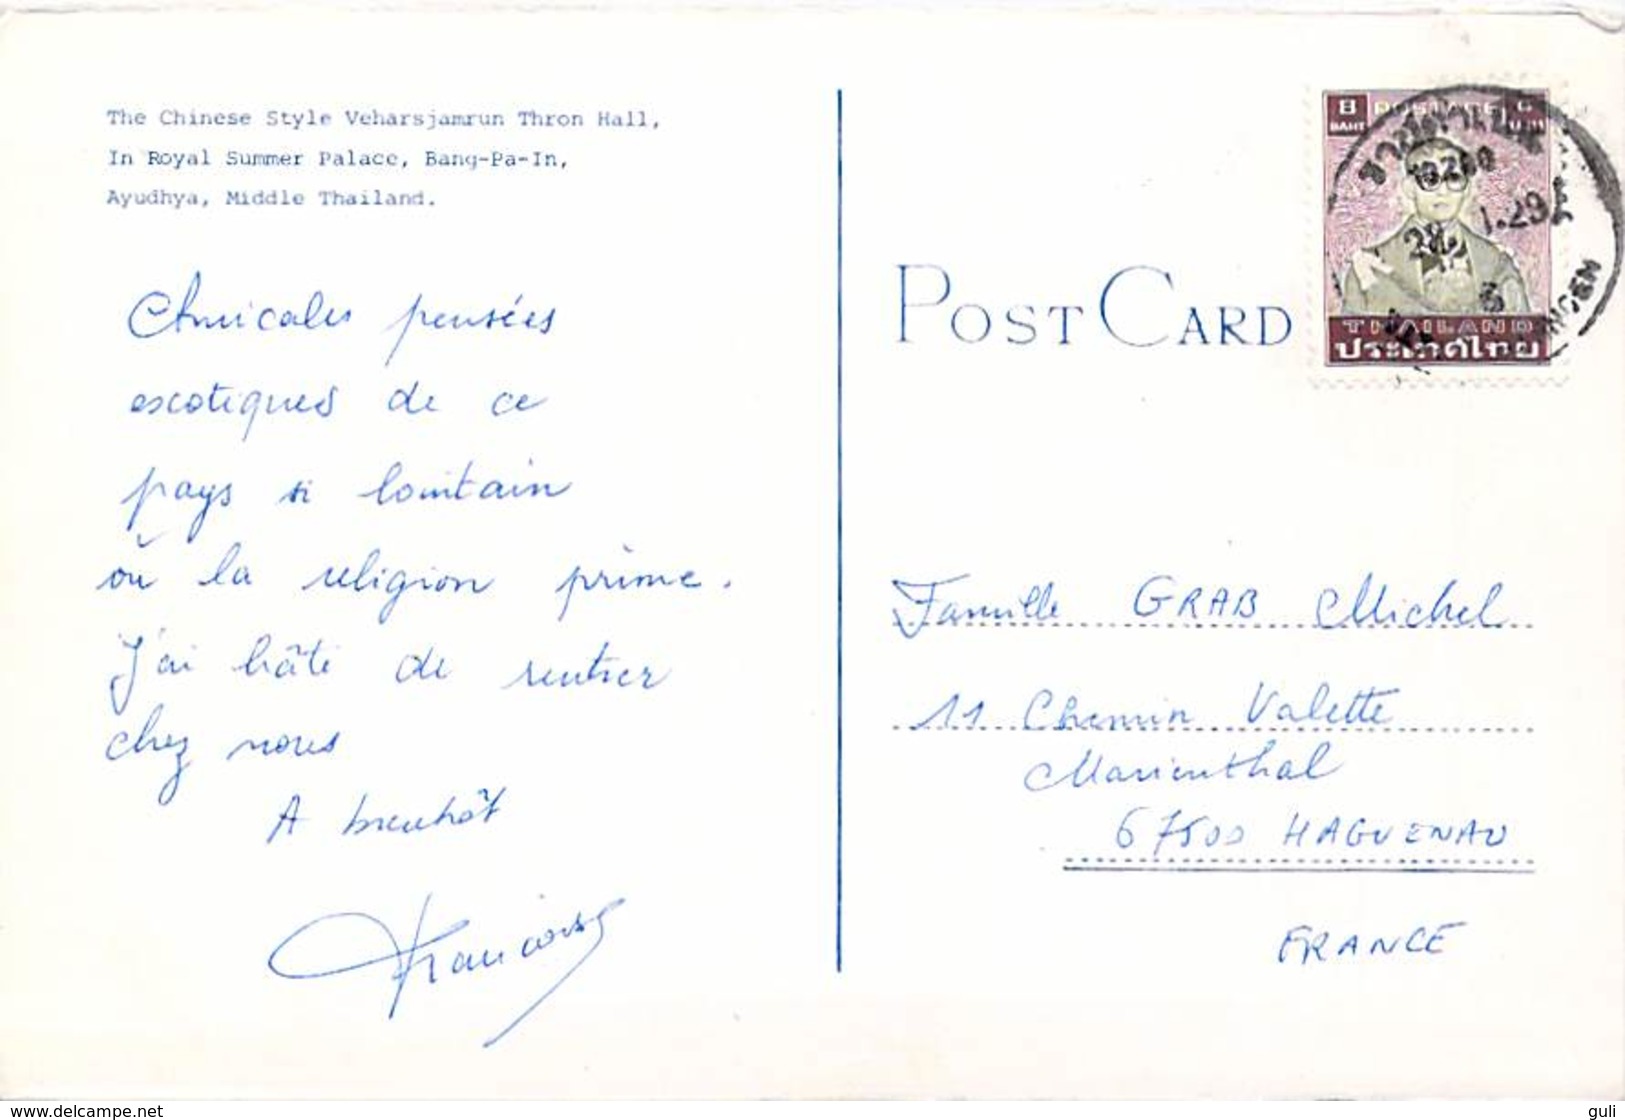 The Chinese Style Veharsjamrun Thron Hall,
In Royal Summer Palace, Bang-Pa-In,
Ayudhya, Middle Thailand.
Amicales pensées
exotiques de ce
pays si lointain
où la religion prime.
J'ai hâte de rentrer
chez nous
A bientôt
François
POST CARD
8 POSTAGE
BAHT
10200
THAILAND
ประเทศไทย
Famille GRAB Michel
11 Chemin Valette
Marienthal
67500 HAGUENAU
FRANCE
www.delcampe.net
guli